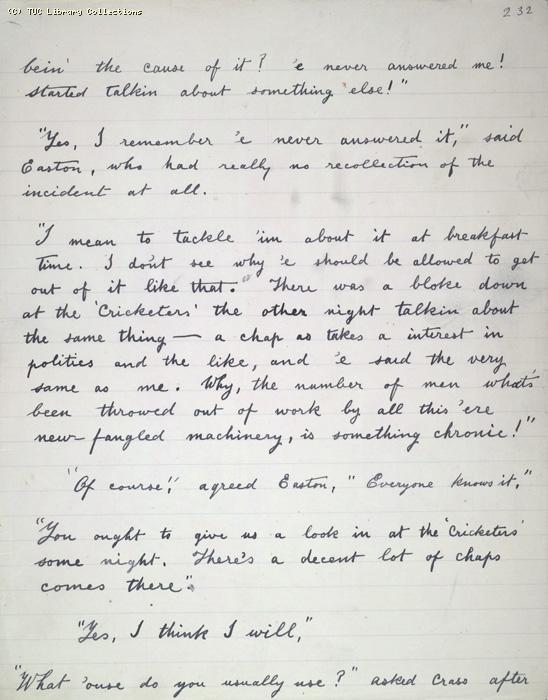 (C) TUC Library Collections
232
bein' the cause of it? 'e never answered me!
Started talkin about something else!"
"Yes, I remember 'e never answered it," said
Easton, who had really no recollection of the
incident at all.
"I mean to tackle 'im about it at breakfast
time. I don't see why 'e should be allowed to get
out of it like that." There was a bloke down
at the 'Cricketers' the other night talkin about
the same thing — a chap as takes a interest in
politics and the like, and 'e said the very
same as me. Why, the number of men what's
been throwed out of work by all this 'ere
new-fangled machinery, is something chronic!"
"Of course!," agreed Easton, "Everyone knows it,"
"You ought to give us a look in at the 'Cricketers'
some night. There's a decent lot of chaps
comes there".
"Yes, I think I will,"
"What 'ouse do you usually use?" asked Crass after